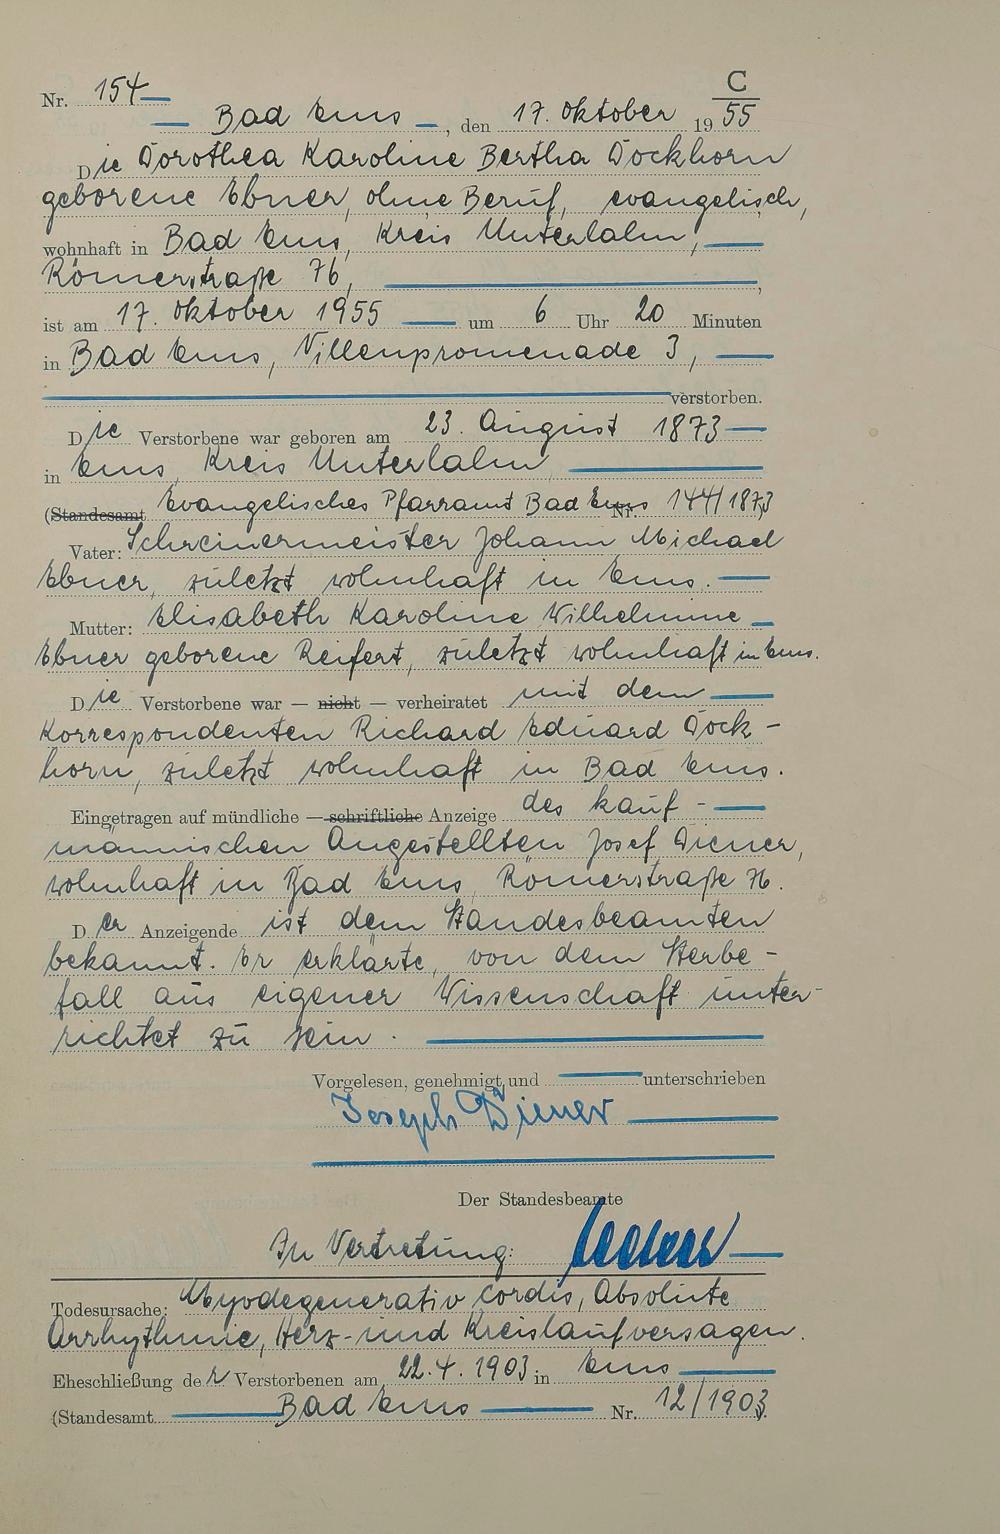 C
Nr. 154
Bad Ems, den 17. Oktober 1955
Die Dorothea Karoline Bertha Dockhorn
geborene Ebner, ohne Beruf, evangelisch,
wohnhaft in Bad Ems, Kreis Unterlahn,
Römerstraße 76,
ist am 17. Oktober 1955 um 6 Uhr 20 Minuten
in Bad Ems, Villenpromenade 3,
verstorben.
Die Verstorbene war geboren am 23. August 1873
in Ems, Kreis Unterlahn
(Standesamt Evangelisches Pfarramt Bad Ems Nr. 144/1873)
Vater: Schreinermeister Johann Michael
Ebner, zuletzt wohnhaft in Ems.
Mutter: Elisabeth Karoline Wilhelmine
Ebner geborene Reifert, zuletzt wohnhaft in Ems.
Die Verstorbene war — nicht — verheiratet mit dem
Korrespondenten Richard Eduard Dock-
horn, zuletzt wohnhaft in Bad Ems.
Eingetragen auf mündliche — schriftliche Anzeige des kauf-
männischen Angestellten Josef Diener,
wohnhaft in Bad Ems, Römerstraße 76.
Der Anzeigende ist dem Standesbeamten
bekannt. Er erklärte, von dem Sterbe-
fall aus eigener Wissenschaft unter-
richtet zu sein.
Vorgelesen, genehmigt und unterschrieben
Joseph Diener
Der Standesbeamte
In Vertretung:
Todesursache: Myodegenerativ cordis, Absolute
Arrhythmie, Herz- und Kreislaufversagen.
Eheschließung der Verstorbenen am 22.4.1903 in Ems
(Standesamt Bad Ems Nr. 12/1903).